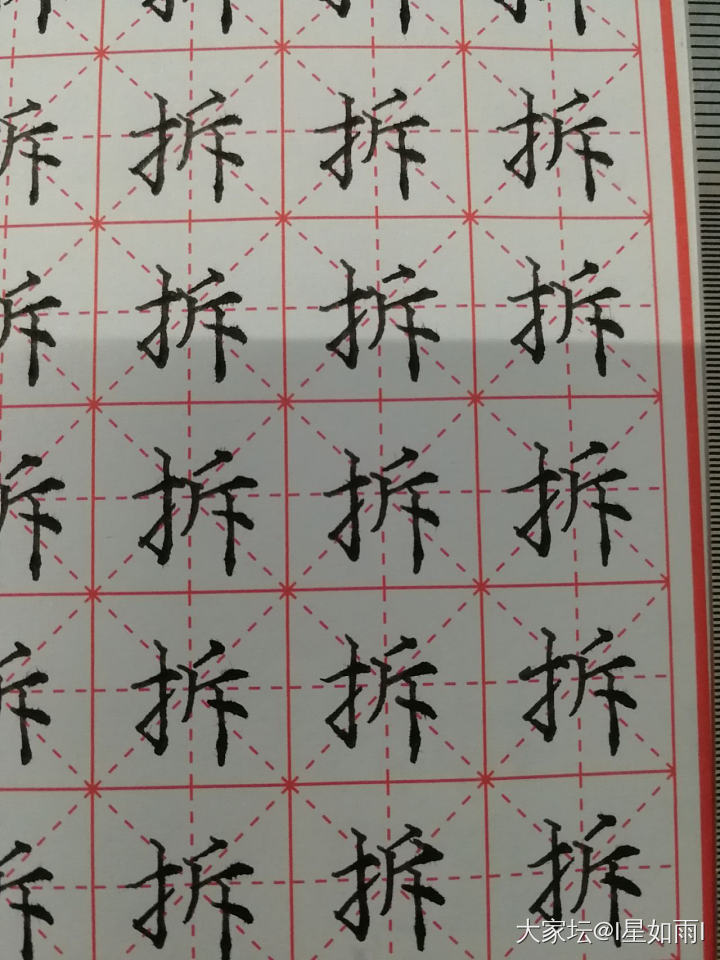 拆 拆 拆
拆 拆 拆
拆 拆 拆
拆 拆 拆
拆 拆 拆
大家坛@l星如雨l